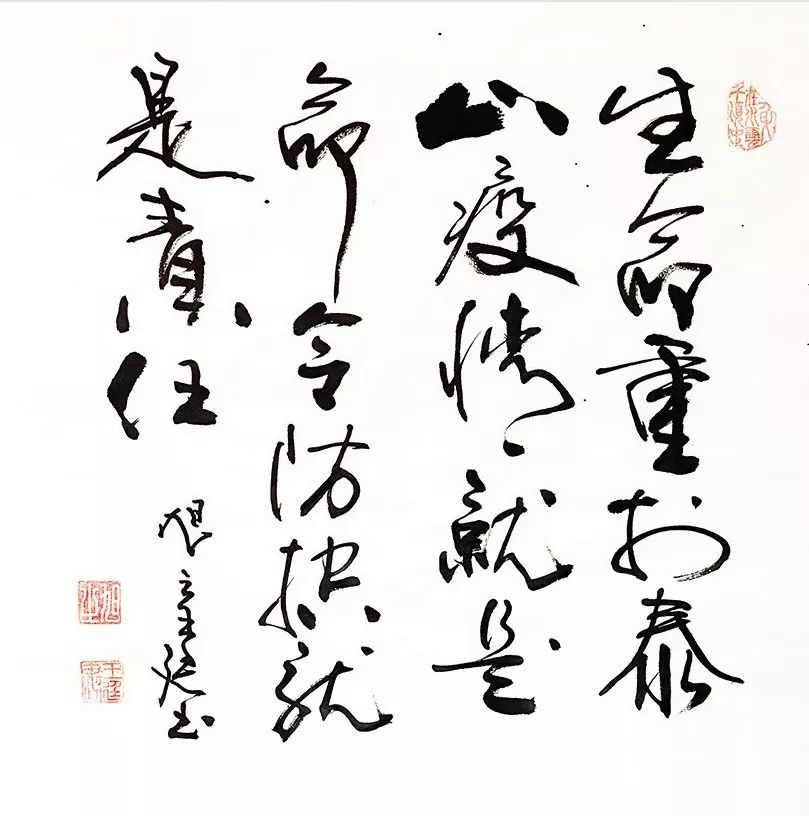 生命重於泰
山疫情就是
命令防控就
是責任